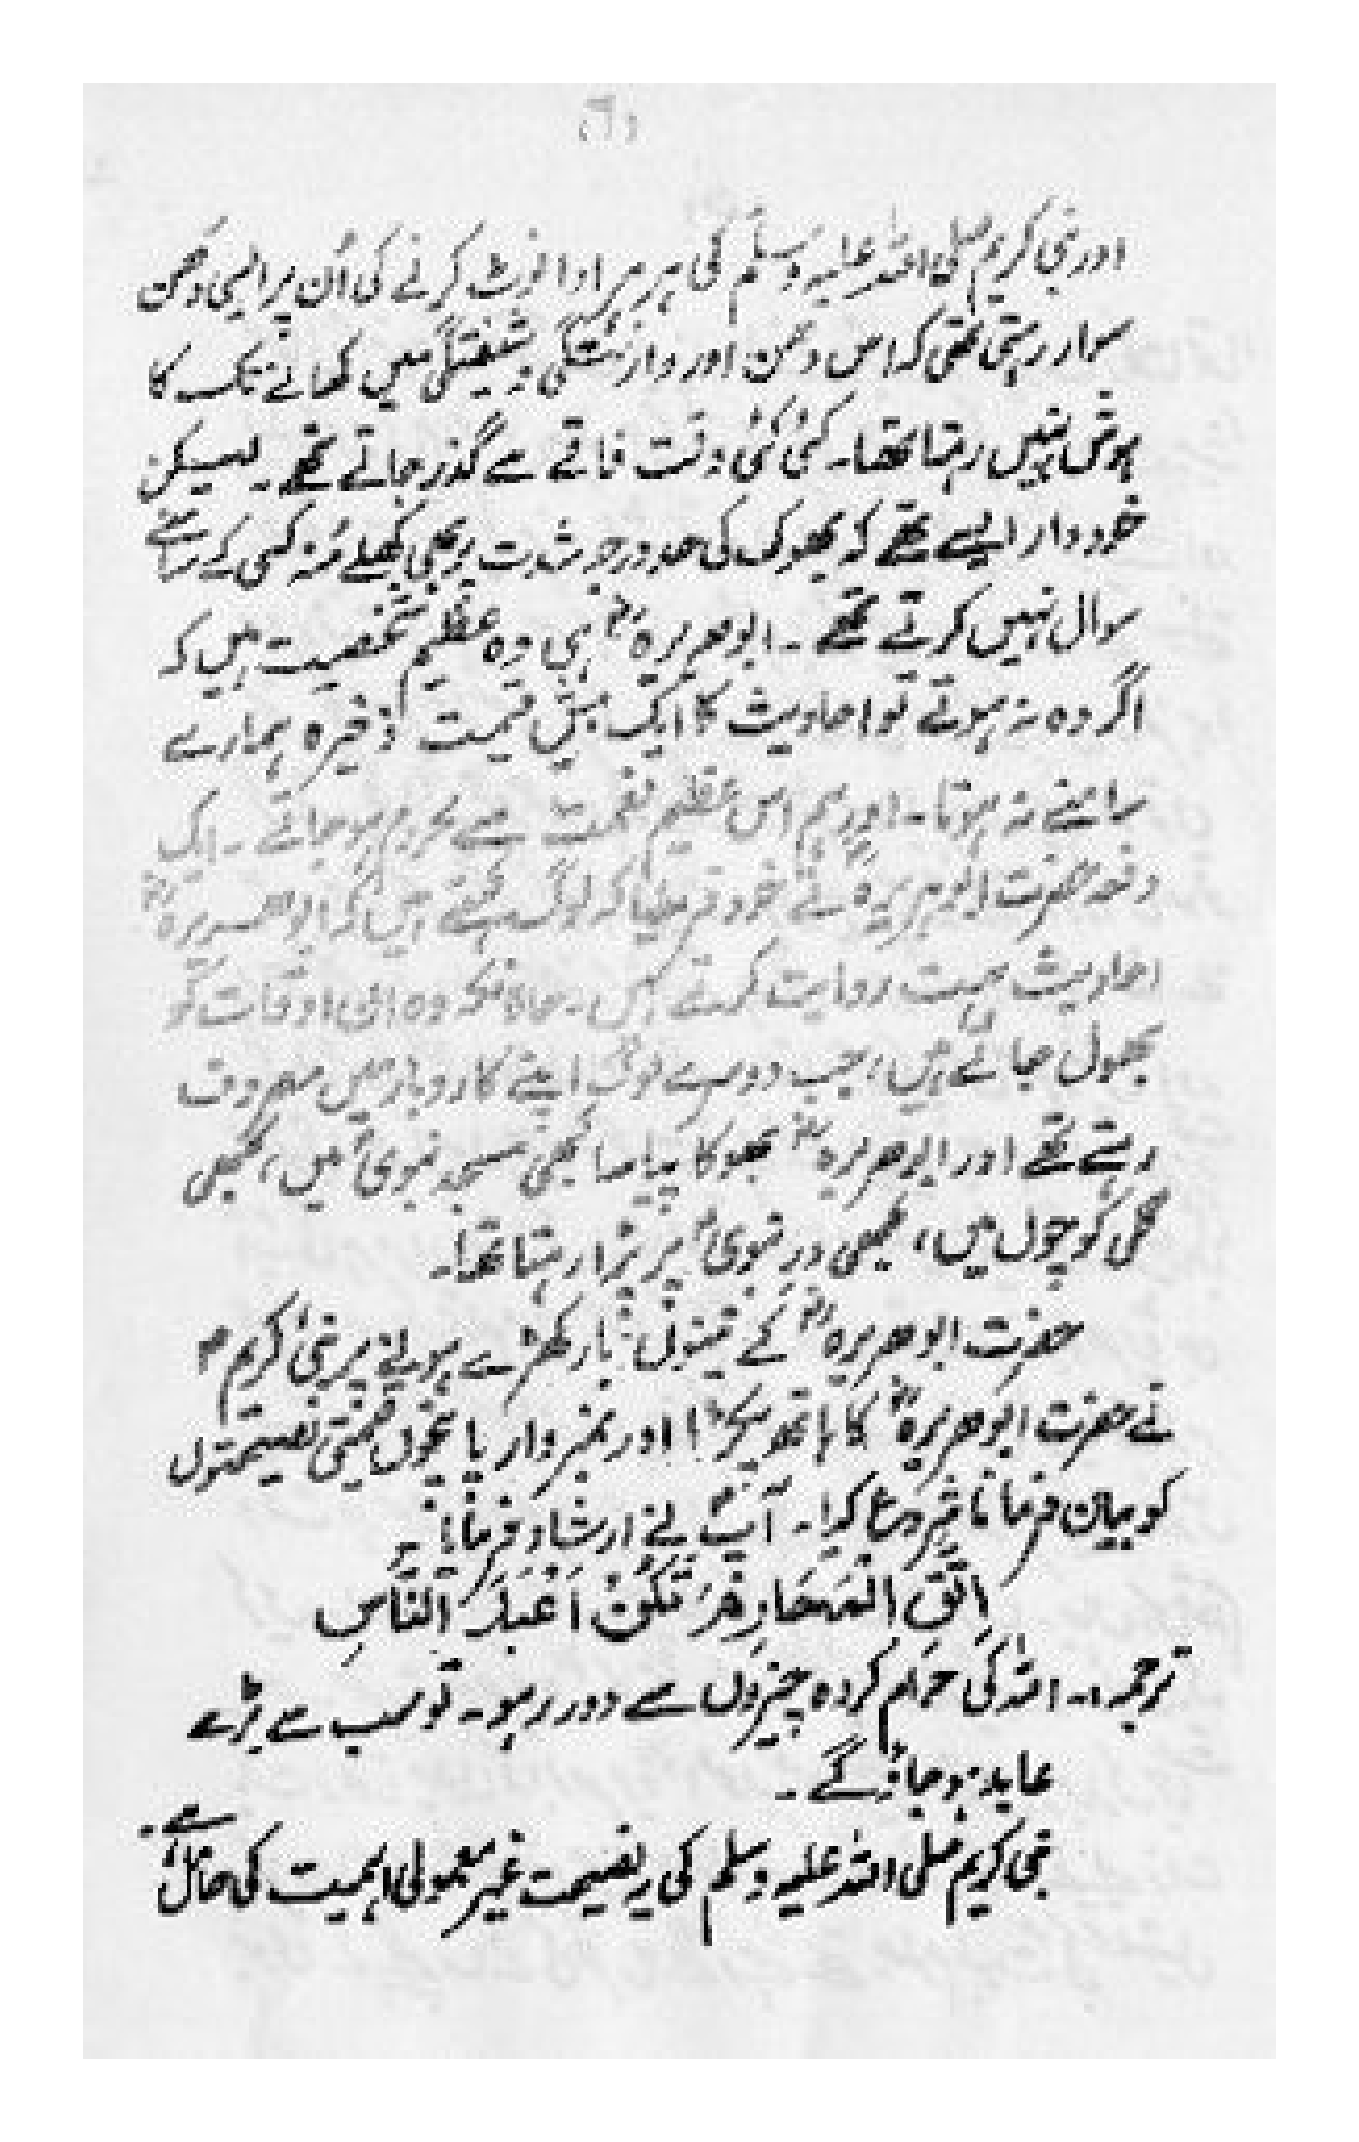 اور نبی کریم صلی اللہ علیہ وسلم کی ہر ہر ادا نوٹ کرنے کی اُن پر ایسی دھن
سوار رہتی تھی کہ اس دھن اور وارفتگی و شیفتگی میں کھانے تک کا
ہوش نہیں رہتا تھا۔ کئی کئی وقت فاقے سے گذر جاتے تھے۔ لیکن
خوددار ایسے تھے کہ بھوک کی حد درجہ شدت پر بھی کھلے منہ کسی کے سامنے
سوال نہیں کرتے تھے۔ ابوھریرہؓ ہی وہ عظیم شخصیت ہیں کہ
اگر وہ نہ ہوتے تو احادیث کا ایک بیش قیمت ذخیرہ ہمارے
سامنے نہ ہوتا۔ اور ہم اس عظیم نعمت سے محروم ہو جاتے۔ ایک
دفعہ حضرت ابوہریرہؓ نے خود فرمایا کہ لوگ کہتے ہیں کہ ابوھریرہؓ
احادیث بہت روایت کرتے ہیں۔ حالانکہ وہ ان اوقات کو
بھول جاتے ہیں، جب دوسرے لوگ اپنے کاروبار میں مصروف
رہتے تھے اور ابوھریرہؓ بھوکا پیاسا کبھی مسجد نبویؐ میں، کبھی
گلی کوچوں میں، کبھی در نبویؐ پر پڑا رہتا تھا۔
حضرت ابوھریرہؓ کے تینوں بار کھڑے ہونے پر نبیٔ کریم ؐ
نے حضرت ابوھریرہؓ کا ہاتھ پکڑا اور نمبروار پانچوں قیمتی نصیحتوں
کو بیان فرمانا شروع کیا۔ آپؐ نے ارشاد فرمایا:۔
اِتَّقِ الْمَحَارِمَ تَكُنْ اَعْبَدَ النَّاسِ
ترجمہ:۔ اللہ کی حرام کردہ چیزوں سے دور رہو۔ تو سب سے بڑے
عابد ہو جاؤ گے۔
نبی کریم صلی اللہ علیہ وسلم کی یہ نصیحت غیر معمولی اہمیت کی حامل ہے۔